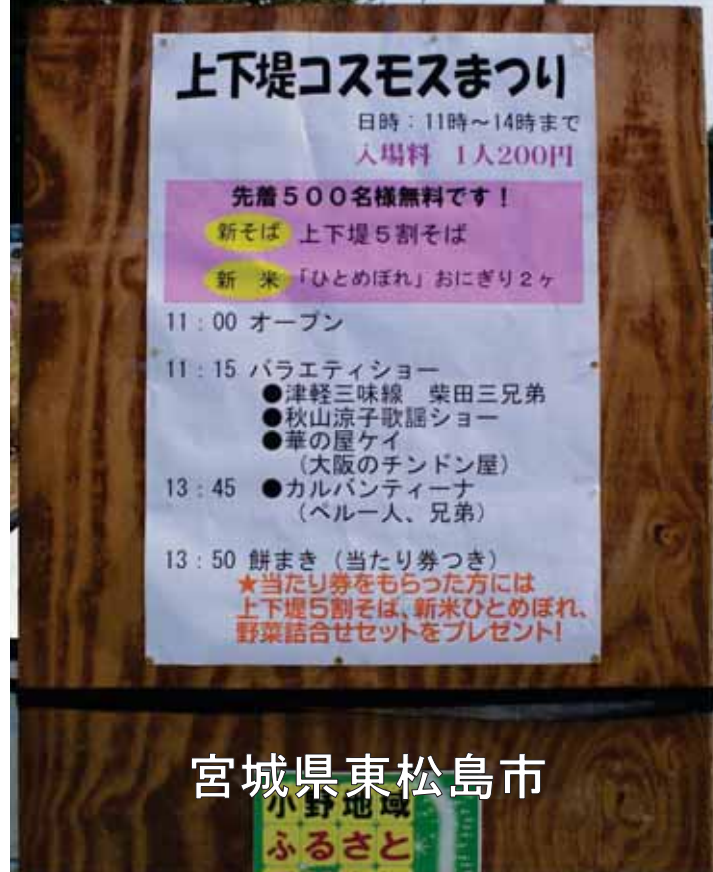 上下堤コスモスまつり
日時：11時～14時まで
入場料　1人200円
先着５００名様無料です！
新そば　上下堤５割そば
新　米　「ひとめぼれ」おにぎり２ヶ
11：00 オープン
11：15 バラエティショー
●津軽三味線　柴田三兄弟
●秋山涼子歌謡ショー
●華の屋ケイ
（大阪のチンドン屋）
13：45　●カルバンティーナ
（ペルー人、兄弟）
13：50 餅まき（当たり券つき）
★当たり券をもらった方には
上下堤5割そば、新米ひとめぼれ、
野菜詰合せセットをプレゼント！
宮城県東松島市
小野地域
ふるさと